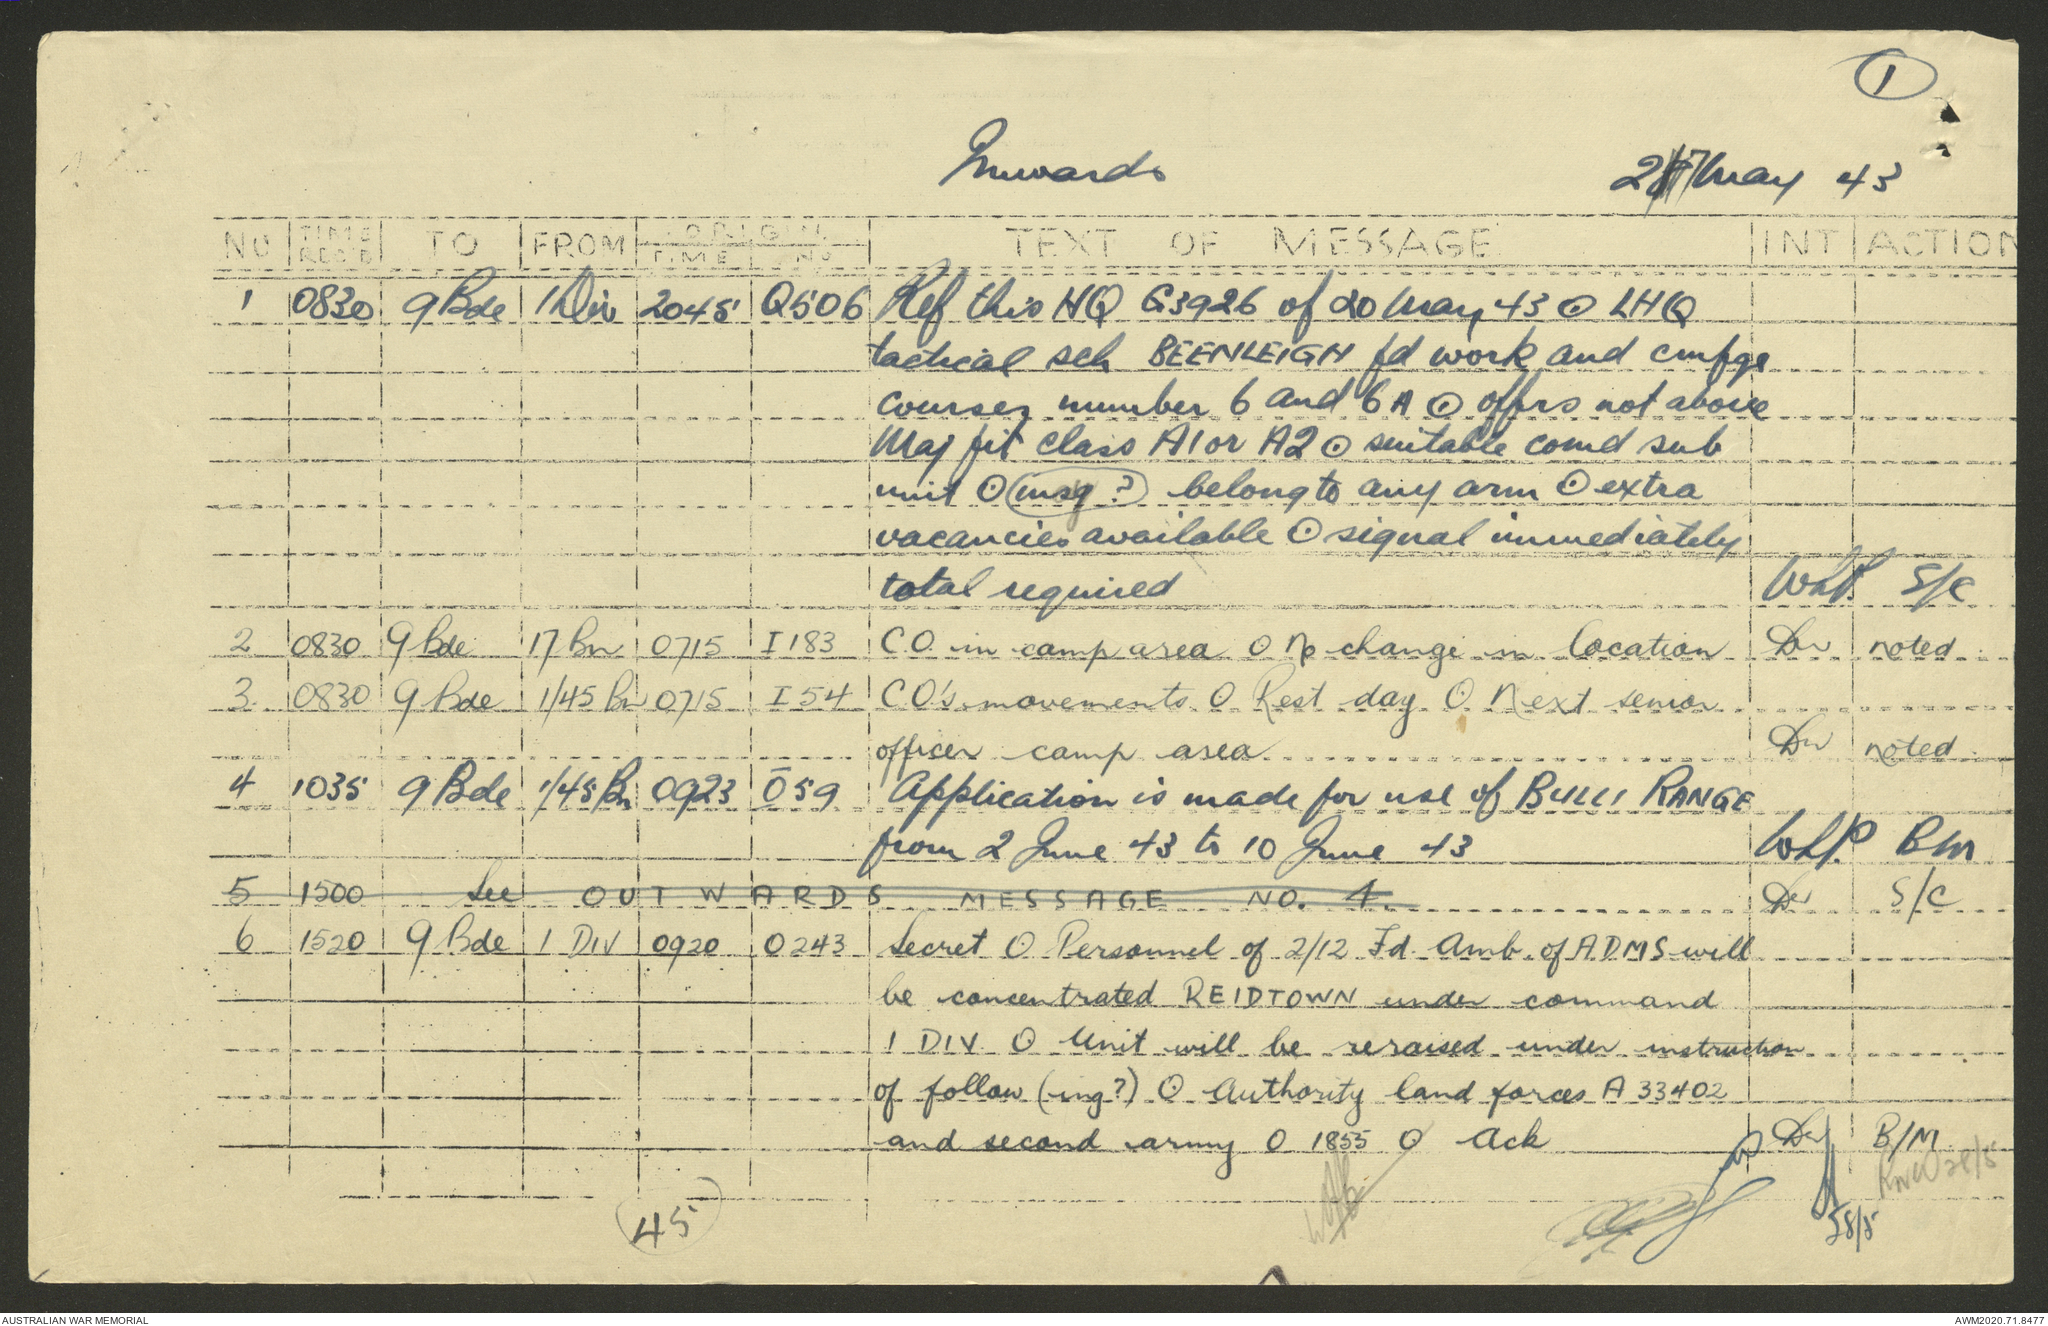 1
Inwards 27 May 43
NO TIME REC'D TO FROM ORIGIN TIME NO TEXT OF MESSAGE INT ACTION
1 0830 9 Bde 1 Div 2045 Q506 Ref this HQ G3926 of 20 May 43 ⊙ LHQ
tactical sch BEENLEIGH fd work and cmfge
courses number 6 and 6A ⊙ offrs not above
Maj fit class A1 or A2 ⊙ suitable comd sub
unit ⊙ (msg ?) belong to any arm ⊙ extra
vacancies available ⊙ signal immediately
total required WhP. S/C
2 0830 9 Bde 17 Bn 0715 I 183 C.O. in camp area ⊙ No change in location noted
3 0830 9 Bde 1/45 Bn 0715 I 54 CO's movements ⊙ Rest day ⊙ Next senior
officer camp area noted
4 1035 9 Bde 1/45 Bn 0923 O59 Application is made for use of BULLI RANGE
from 2 June 43 to 10 June 43 WhP. BM
5 1500 See OUTWARDS MESSAGE NO. 4. S/C
6 1520 9 Bde 1 DIV 0920 O243 Secret ⊙ Personnel of 2/12 Fd. Amb. of ADMS will
be concentrated REIDTOWN under command
1 DIV ⊙ Unit will be reraised under instruction
of follow (ing?) ⊙ Authority land forces A 33402
and second army ⊙ 1855 ⊙ Ack B/M
28/5
45
28/5
AUSTRALIAN WAR MEMORIAL AWM2020.71.8477